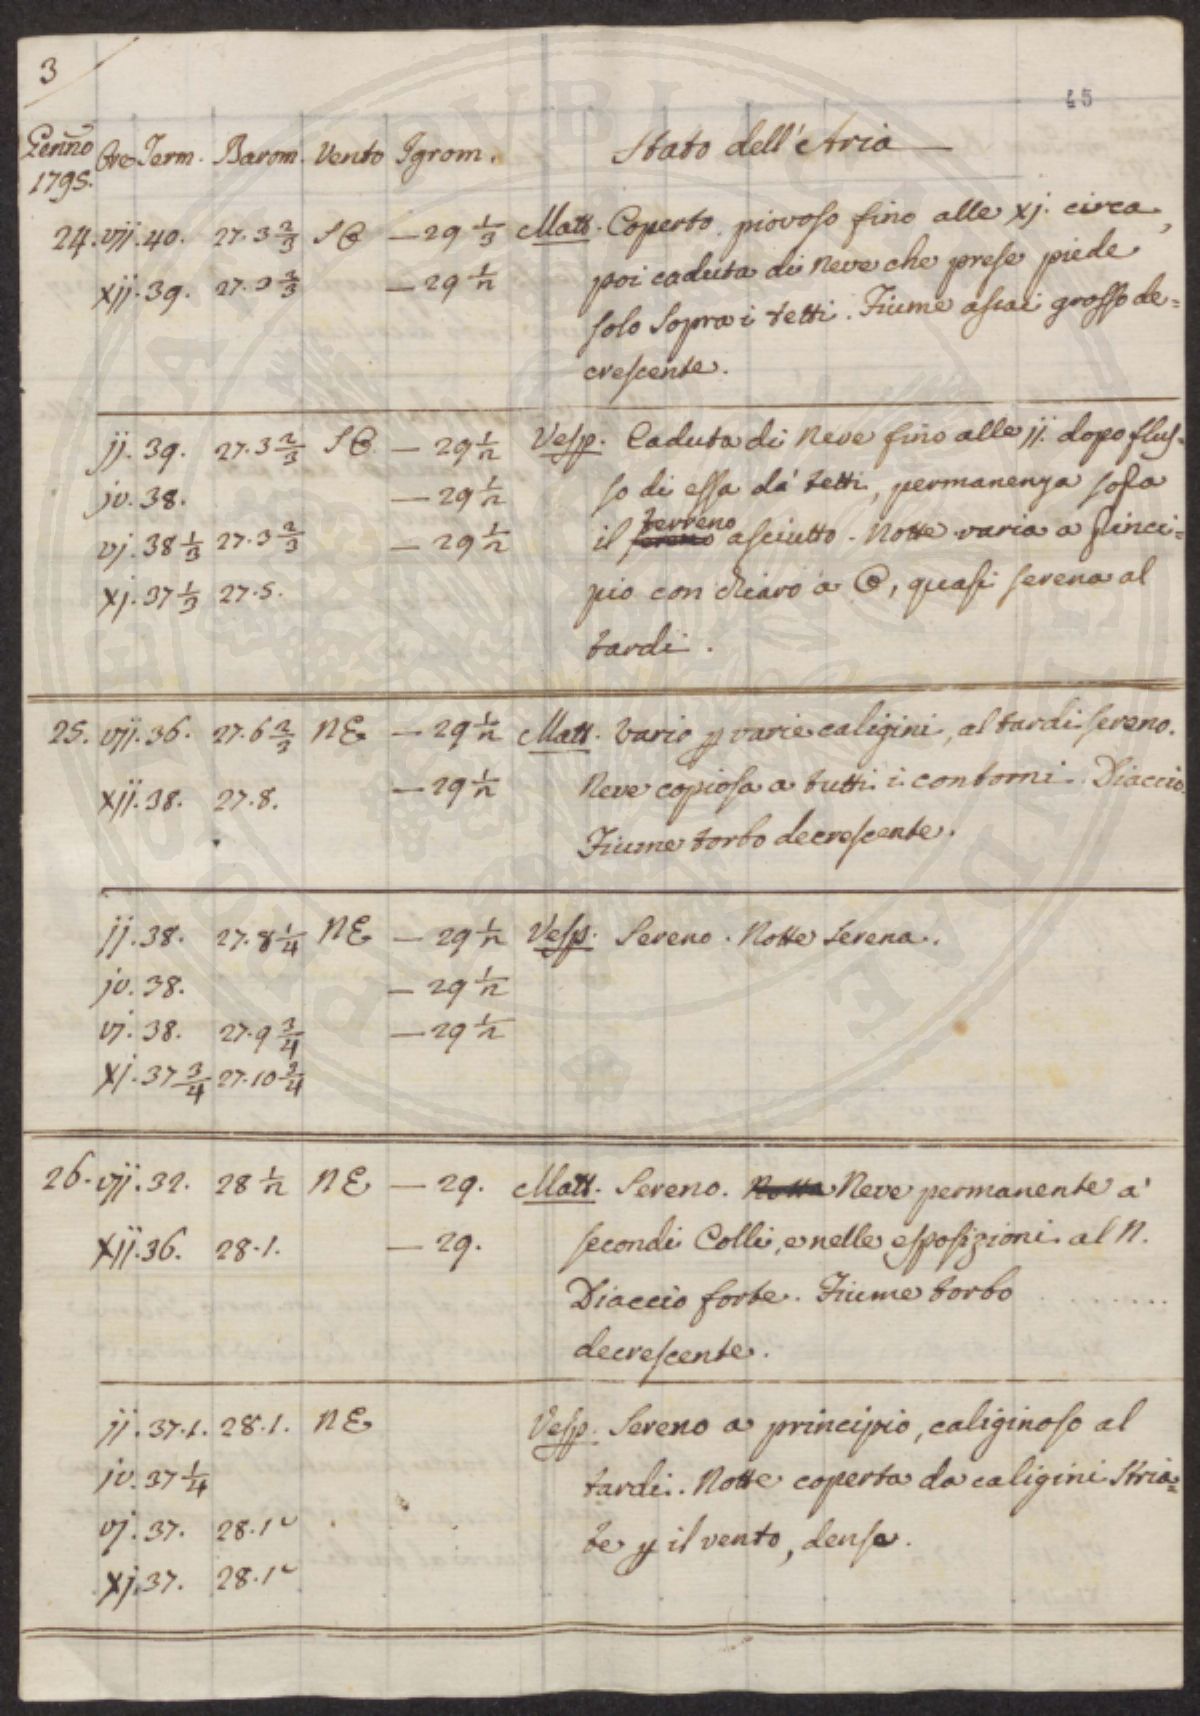 3
45
Genno 1795. Ore Term. Barom. Vento Igrom. Stato dell'Aria
24. vij. 40. 27.3 2/3 SO — 29 1/3 Matt. Coperto, piovoso fino alle xj. circa,
xij. 39. 27.3 2/3 — 29 1/2 poi caduta di Neve che prese piede
solo sopra i tetti. Fiume assai grosso de=
crescente.
ij. 39. 27.3 2/3 SO. — 29 1/2 Vesp. Caduta di Neve fino alle ij. dopo flus=
iv. 38. — 29 1/2 so di essa da' tetti, permanenza sofa
vj. 38 1/3 27.3 2/3 — 29 1/2 il sereno terreno asciutto. Notte varia a princi=
xj. 37 1/3 27.5. pio con chiaro a O, quasi serena al
tardi.
25. vij. 36. 27.6 2/3 NE — 29 1/2 Matt. Vario p varie caligini, al tardi sereno.
xij. 38. 27.8. — 29 1/2 Neve copiosa a tutti i contorni. Diaccio.
Fiume torbo decrescente.
ij. 38. 27.8 1/4 NE — 29 1/2 Vesp. Sereno. Notte serena.
iv. 38. — 29 1/2
vj. 38. 27.9 3/4 — 29 1/2
xj. 37 3/4 27.10 3/4
26. vij. 32. 28 1/2 NE — 29. Matt. Sereno. Notta Neve permanente a'
xij. 36. 28.1. — 29. secondi Colli, e nelle esposizioni al N.
Diaccio forte. Fiume torbo
decrescente.
ij. 37.1. 28.1. NE Vesp. Sereno a principio, caliginoso al
iv. 37 1/4 tardi. Notte coperta da caligini stria=
vj. 37. 28.1 te p il vento, dense.
xj. 37. 28.1